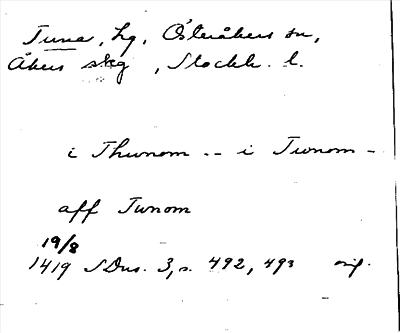 Tuna, hg, Österåkers sn,
Åkers skg, Stockh. l.
i Thunom -- i Twnom -
aff Twnom
19/8
1419 SDns. 3, s. 492, 493 orig.